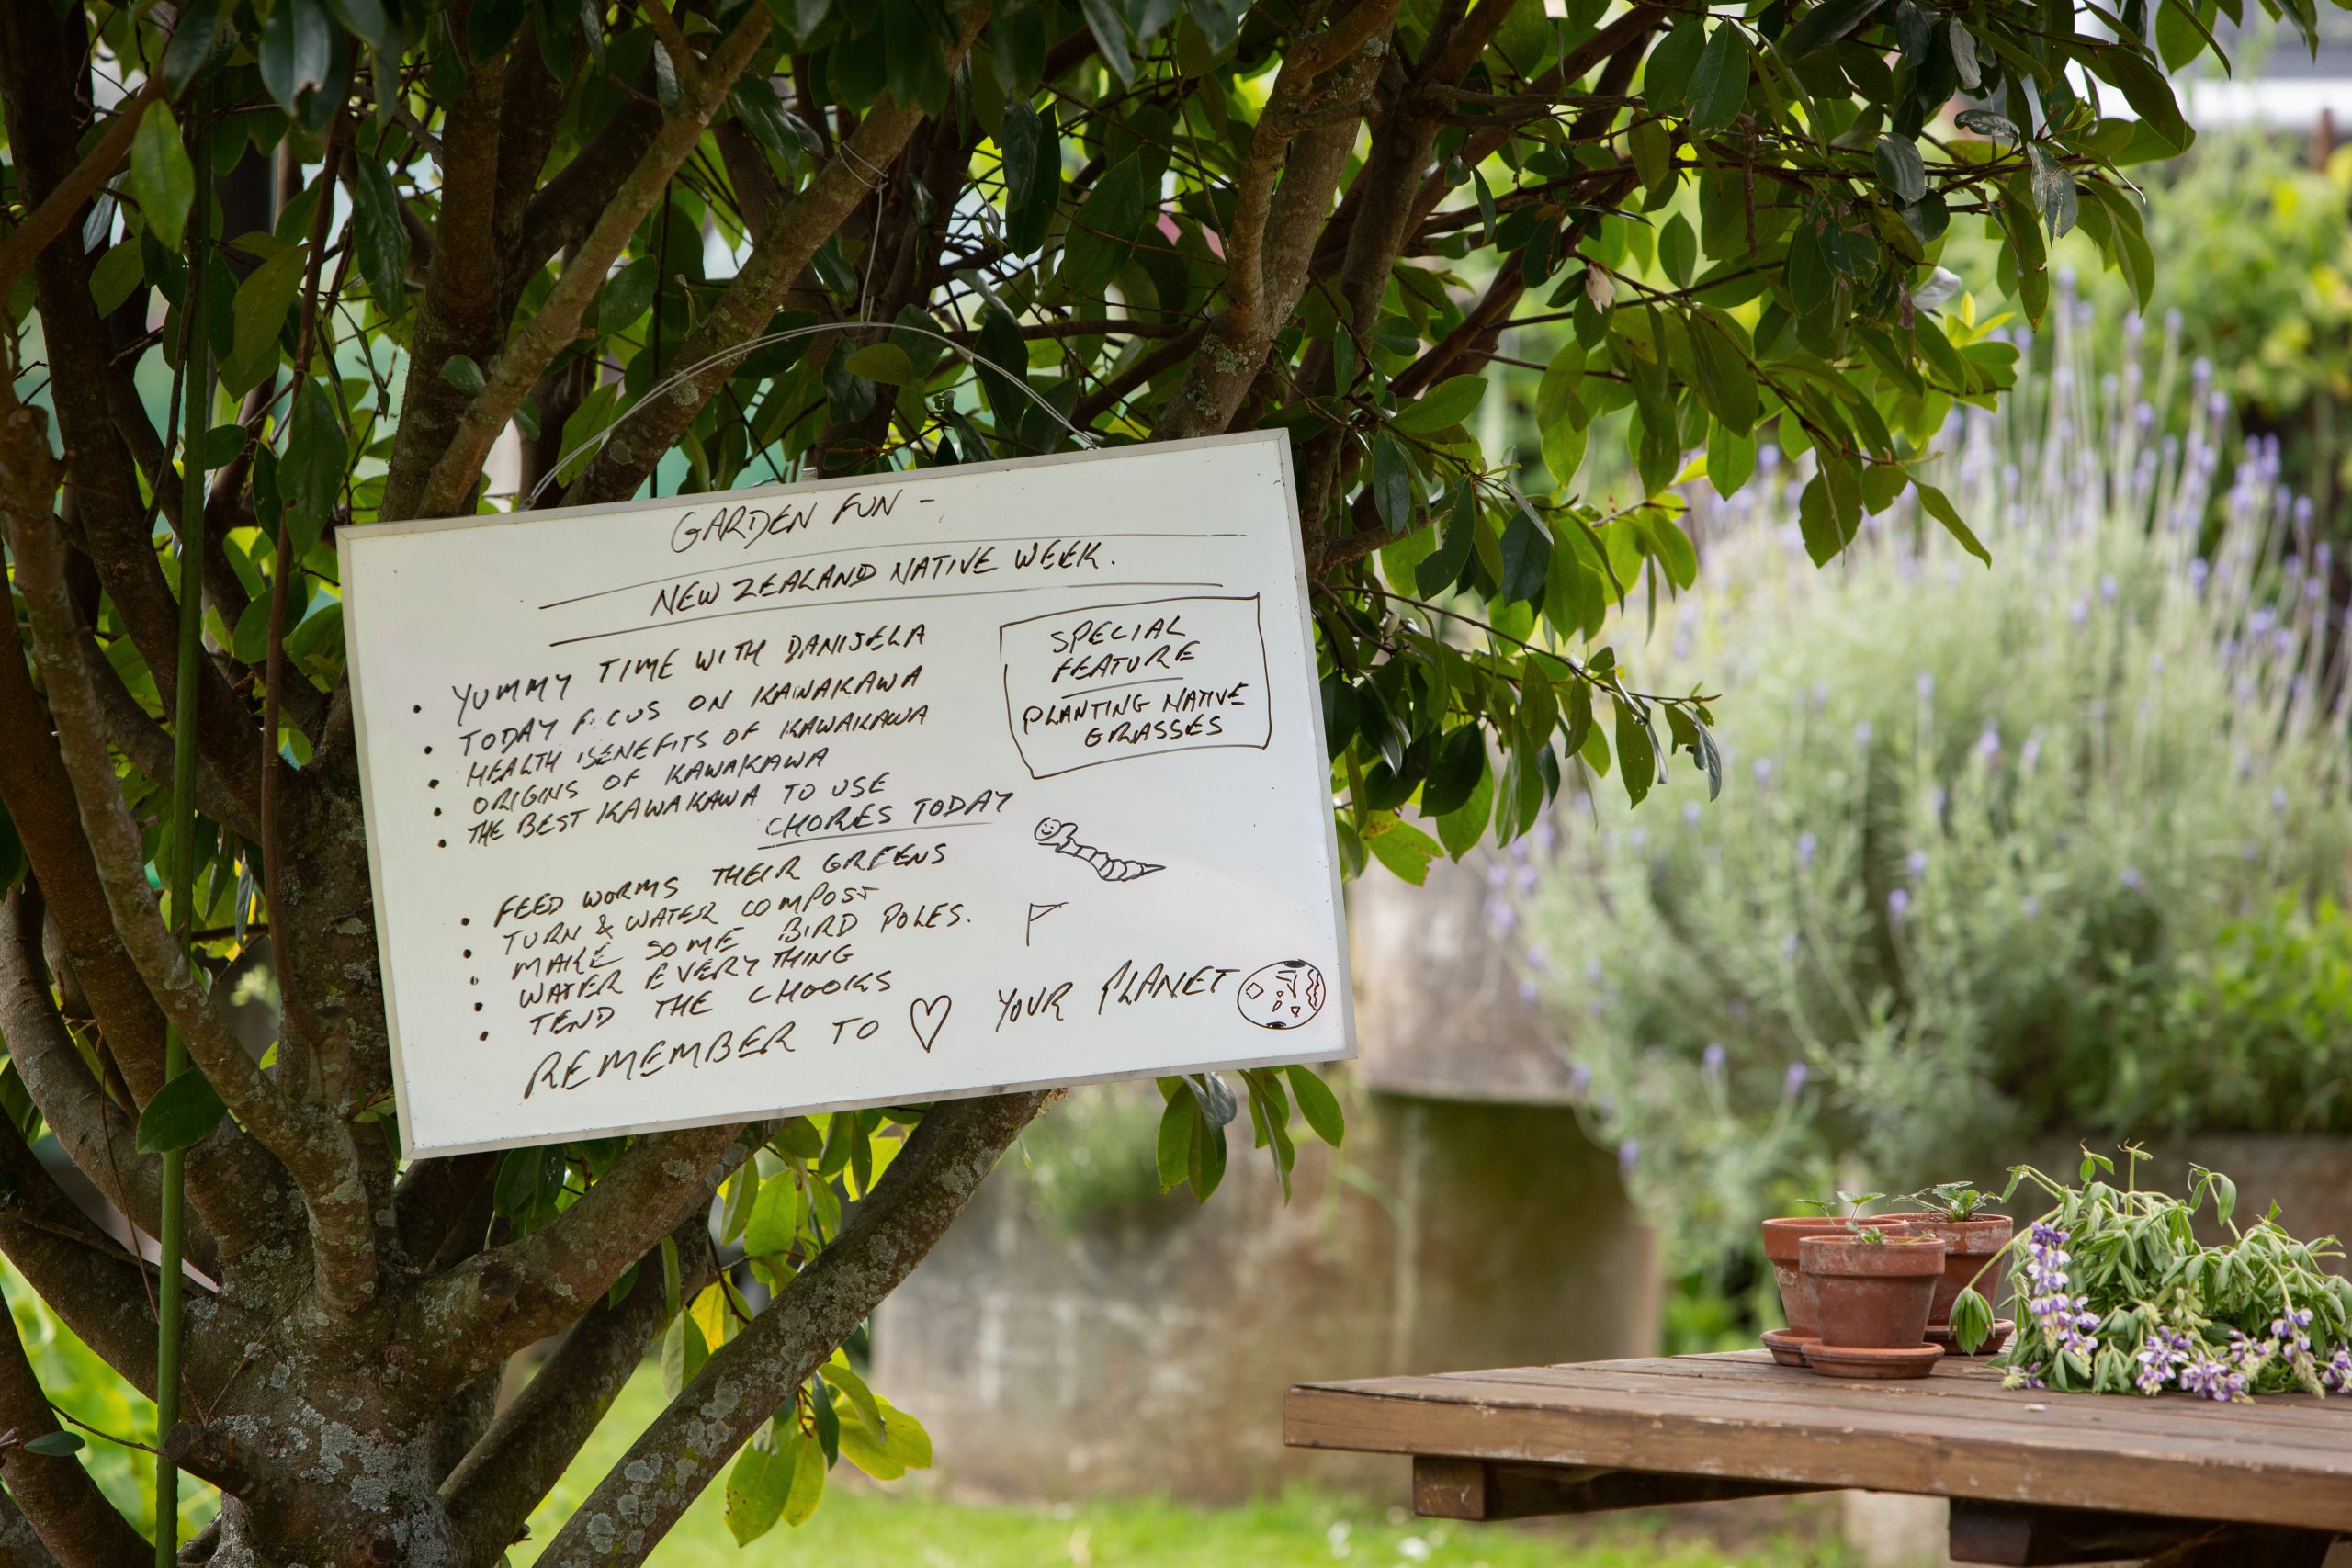 GARDEN FUN -
NEW ZEALAND NATIVE WEEK.
• YUMMY TIME WITH DANIJELA
• TODAY FOCUS ON KAWAKAWA
• HEALTH BENEFITS OF KAWAKAWA
• ORIGINS OF KAWAKAWA
• THE BEST KAWAKAWA TO USE
SPECIAL
FEATURE
PLANTING NATIVE
GRASSES
CHORES TODAY
• FEED WORMS THEIR GREENS
• TURN & WATER COMPOST
• MAKE SOME BIRD POLES.
• WATER EVERYTHING
• TEND THE CHOOKS
REMEMBER TO ♡ YOUR PLANET